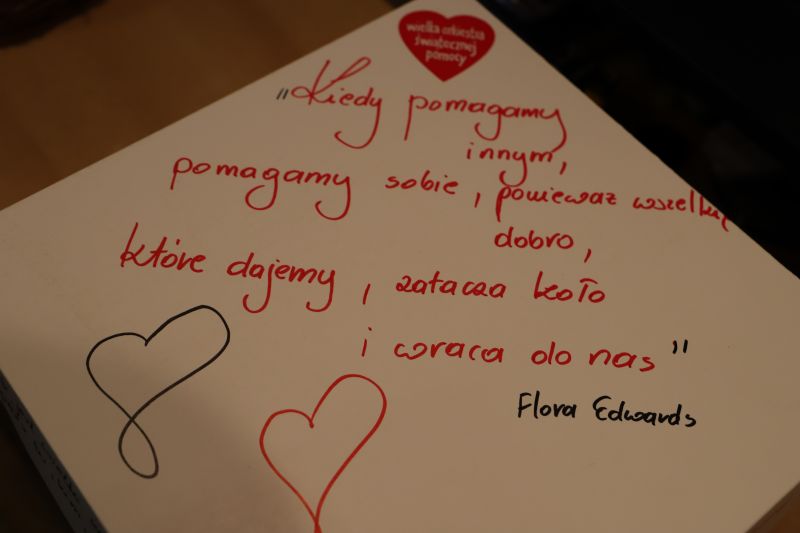 wielka orkiestra
świątecznej
pomocy
"Kiedy pomagamy
innym,
pomagamy sobie, ponieważ wszelkie
dobro,
które dajemy, zatacza koło
i wraca do nas"
Flora Edwards